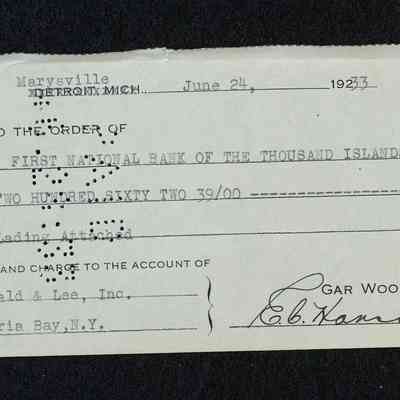 Marysville
DETROIT, MICH. June 24, 1933
O THE ORDER OF
FIRST NATIONAL BANK OF THE THOUSAND ISLANDS
TWO HUNDRED SIXTY TWO 39/00 --------------
Lading Attached
AND CHARGE TO THE ACCOUNT OF
ald & Lee, Inc.
ria Bay, N.Y.
GAR WOO
E.C.